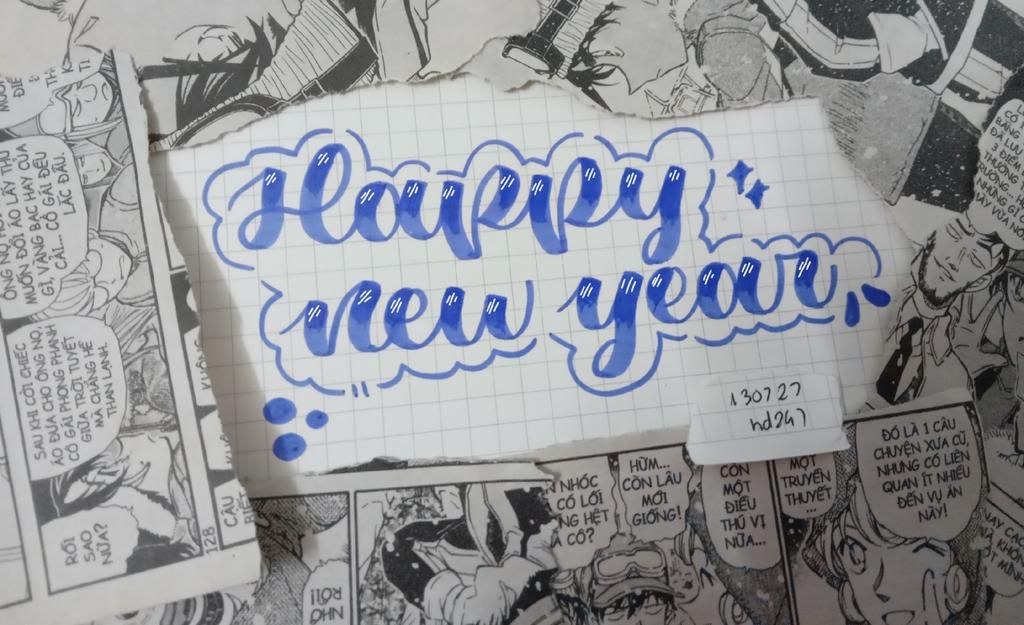 Happy
new year
130727
hd247
MUỐN
ÔNG NÀO HỎI LẤY THỨ
MUỐN ĐỔI ÁO LẤY THỨ
GÌ, VÀNG BẠC HAY CỦA
CẢI... CÔ GÁI ĐỀU
LẮC ĐẦU.
SAU KHI CỞI CHIẾC
ÁO ĐƯA CHO ÔNG NỌ,
CÔ GÁI PHONG PHANH
GIỮA TRỜI TUYẾT
MÀ CHẲNG HỀ
THAN LẠNH.
RỒI
SAO
NỮA?
128
CÂU
NHÓC
CÓ LỐI
HỆT
CÔ?
HỪM...
CÒN LÂU
MỚI
GIỐNG!
CÒN
MỘT
ĐIỀU
THÚ VỊ
NỮA...
MỘT
TRUYỀN
THUYẾT
...
ĐÓ LÀ 1 CÂU
CHUYỆN XƯA CŨ,
NHƯNG CÓ LIÊN
QUAN ÍT NHIỀU
ĐẾN VỤ ÁN
NÀY!
CÓ
BĂNG
ĐÃ LƯU
3 ĐIỂM
THƯỜNG
NHƯNG GÌ